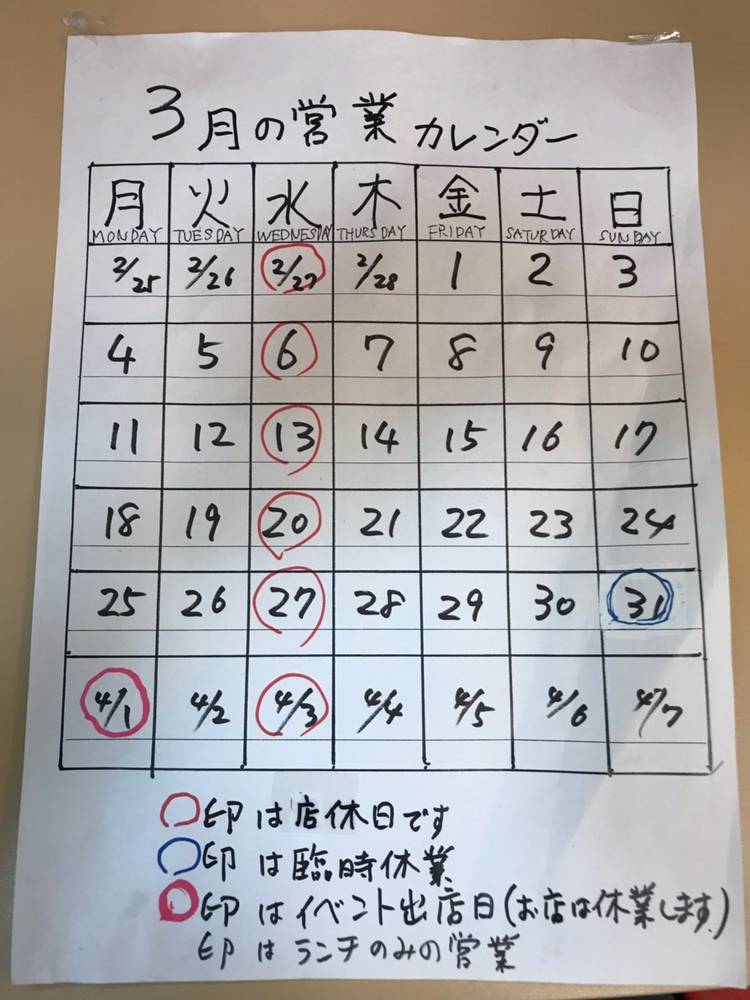 3月の営業カレンダー
月 火 水 木 金 土 日
MONDAY TUESDAY WEDNESDA THURSDAY FRIDAY SATURDAY SUNDAY
2/25 2/26 2/27 2/28 1 2 3
4 5 6 7 8 9 10
11 12 13 14 15 16 17
18 19 20 21 22 23 24
25 26 27 28 29 30 31
4/1 4/2 4/3 4/4 4/5 4/6 4/7
印は店休日です
印は臨時休業
印はイベント出店日(お店は休業します)
印はランチのみの営業